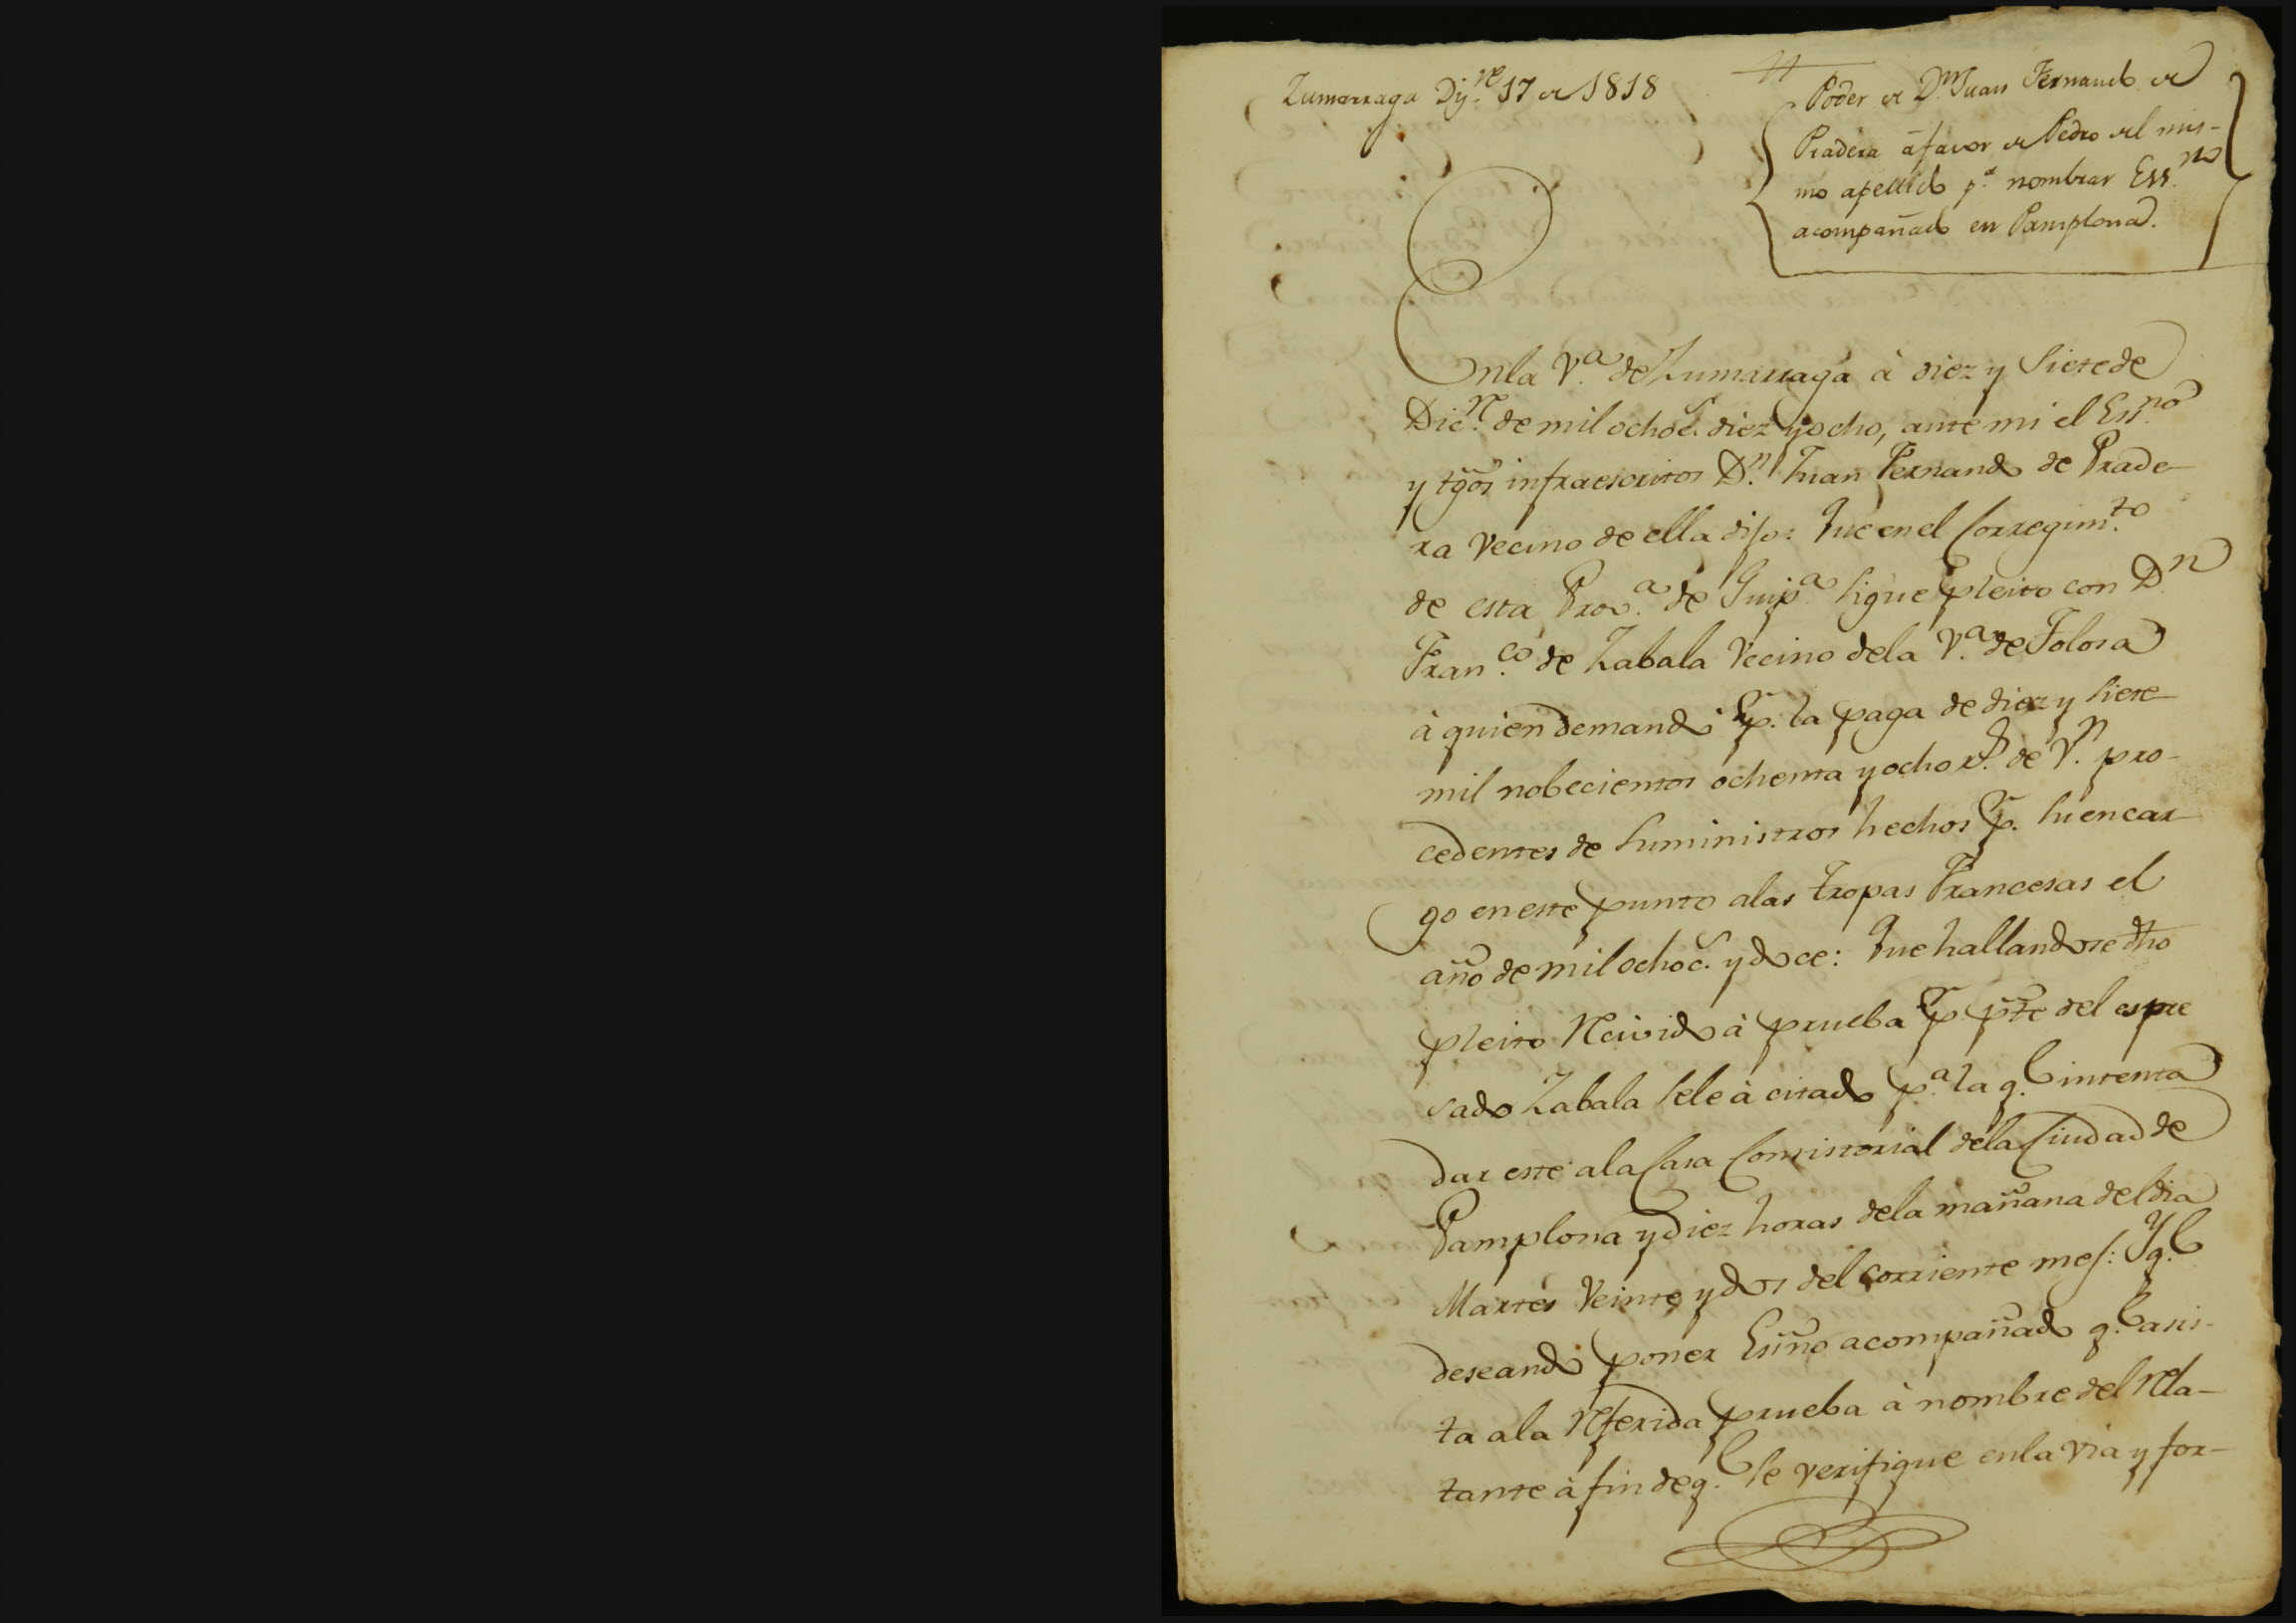 Zumarraga Dij.re 17 de 1818
Poder de Dn Juan Fernando de
Pradera á favor de Pedro del mis-
mo apellido p.a nombrar Ess.no
acompañado en Pamplona.
Enla V.a de Zumarraga à diez y Siete de
Dic.re de mil ochoc.s diez y ocho, ante mi el Ess.no
y tgõs infraescritos D.n Juan Fernando de Prade-
ra Vecino de ella dijo: Que en el Corregim.to
de esta Prov.a de Guip.a Sigue pleito con D.n
Fran.co de Zabala Vecino dela V.a de Tolosa
à quien demandó p.r la paga de diez y Siete
mil nobecientos ochenta y ocho r.s de V.n pro-
cedentes de Suministros hechos p.r Su encar-
go en este punto alas tropas Francesas el
año de mil ochoc.s y doce: Que hallandose dho
pleito Recivido à prueba p.r pte del espre
sado Zabala Sele à citado p.a la q.e intenta
dar este ala Casa Consistorial dela Ciudad de
Pamplona y diez horas dela mañana del dia
Martes Veinte y dos del corriente mes: Y q.e
deseando poner Essno acompañado q.e asis-
ta ala Referida prueba à nombre del Rela-
tante à fin de q.e Se verifique enla via y for-